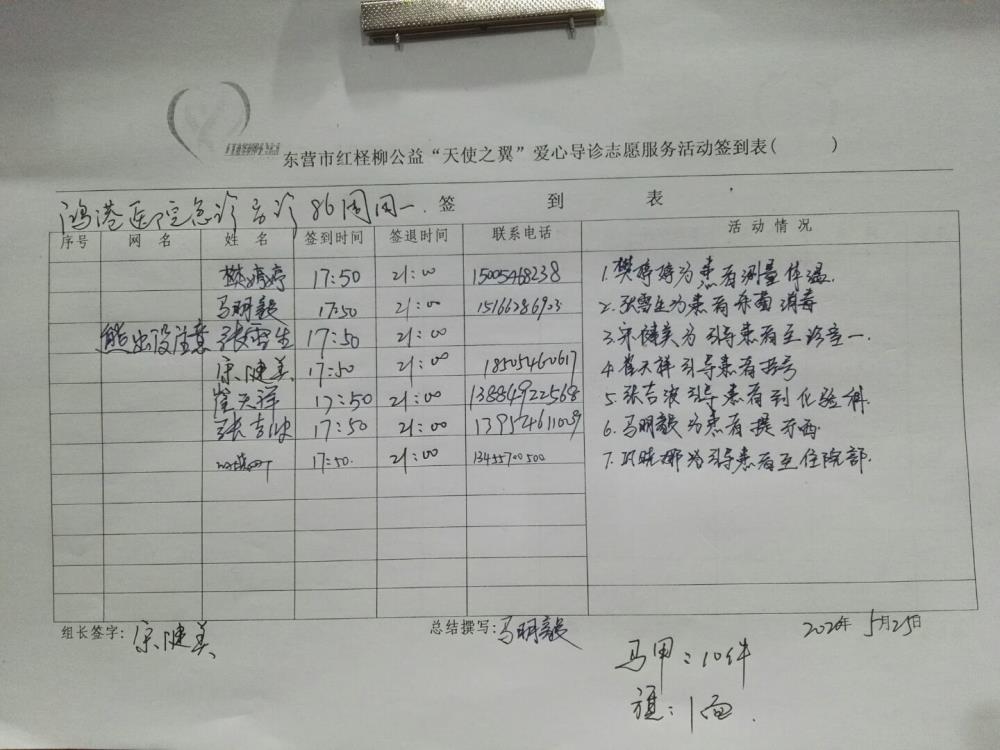 东营市红柽柳公益“天使之翼”爱心导诊志愿服务活动签到表( )
签 到 表
鸿港医院急诊导诊 86周周一.
序号 网 名 姓 名 签到时间 签退时间 联系电话 活 动 情 况
樊婷婷 17:50 21:00 15005468238 1.樊婷婷为患者测量体温.
马明毅 17:50 21:00 15166286923 2.张雪生为患者杀菌消毒
熊出没注意 张雪生 17:50 21:00 3.宋健美为引导患者至诊室一.
宋健美 17:50 21:00 18505460617 4.崔天祥引导患者挂号
崔天祥 17:50 21:00 13884922568 5.张吉波引导患者到化验科.
张吉波 17:50 21:00 13954611009 6.马明毅为患者提东西
17:50. 21:00 13455700500 7.晓娜为引导患者至住院部.
组长签字: 宋健美 总结撰写: 马明毅 2020年 5月25日
马甲:10件
旗:1面.